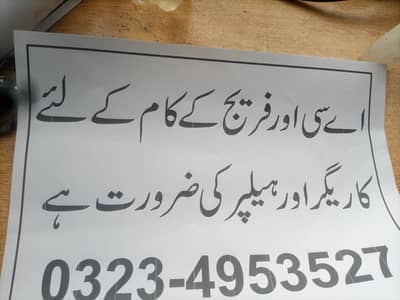 اے سی اور فریج کے کام کے لئے
کاریگر اور ہیلپر کی ضرورت ہے
0323-4953527